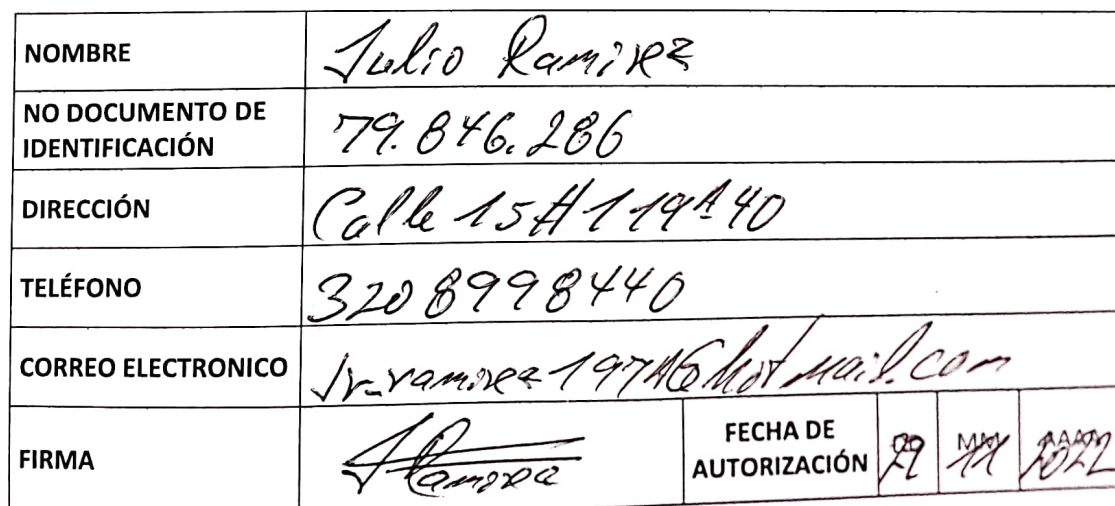 NOMBRE Julio Ramirez
NO DOCUMENTO DE
IDENTIFICACIÓN 79.846.286
DIRECCIÓN Calle 15 # 119A 40
TELÉFONO 320 8998440
CORREO ELECTRONICO Jr-ramirez1974@hotmail.com
FIRMA JRamirez FECHA DE
AUTORIZACIÓN 29 MM 11 2022